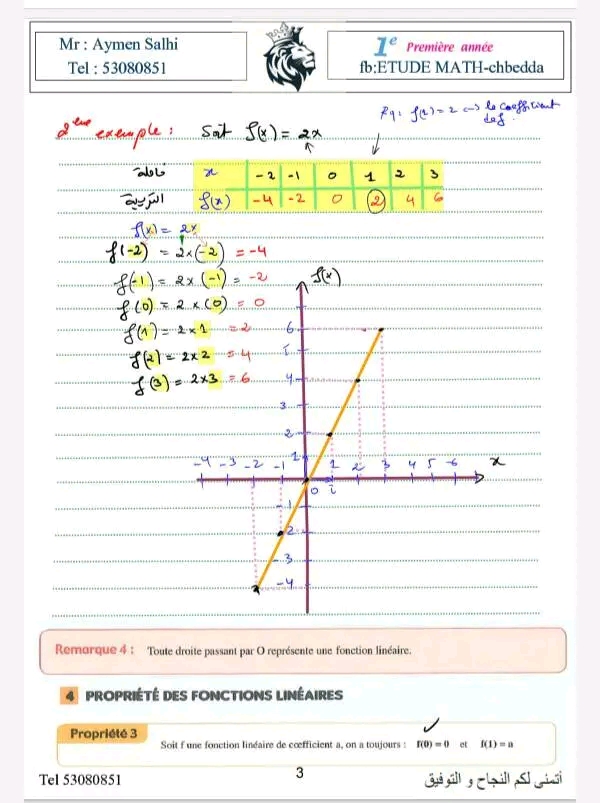 Mr : Aymen Salhi
Tel : 53080851
1e Première année
fb:ETUDE MATH-chbedda
Rq: f(1) = 2 → le coefficient de f.
2ème exemple : Soit f(x) = 2x
فاصلة x -2 -1 0 1 2 3
الترتيبة f(x) -4 -2 0 2 4 6
f(x) = 2x
f(-2) = 2x(-2) = -4
f(-1) = 2x(-1) = -2
f(0) = 2x(0) = 0
f(1) = 2x1 = 2
f(2) = 2x2 = 4
f(3) = 2x3 = 6
f(x)
6
5
4
3
2
1
-4 -3 -2 -1 1 2 3 4 5 6 x
O i
-1
-2
-3
-4
Remarque 4 : Toute droite passant par O représente une fonction linéaire.
4 PROPRIÉTÉ DES FONCTIONS LINÉAIRES
Propriété 3
Soit f une fonction linéaire de coefficient a, on a toujours : f(0) = 0 et f(1) = a
Tel 53080851
3
أتمنى لكم النجاح و التوفيق